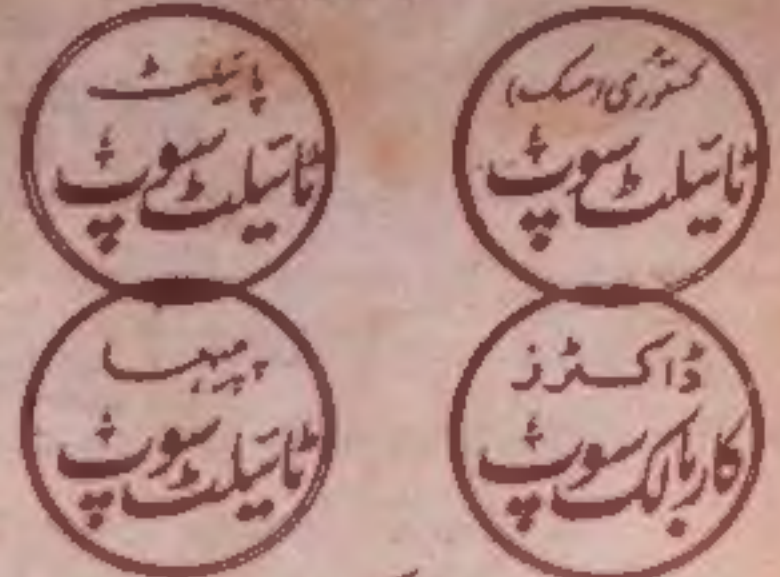 کستوری (مسک)
ٹائیلٹ سوپ
پائیلٹ
ٹائیلٹ سوپ
ڈاکٹرز
کاربالک سوپ
پپیہا
ٹائیلٹ سوپ